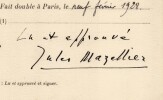 Fait double à Paris, le neuf février 1922
(1)
Lu et approuvé
Jules Mazellier
(1) Lu et approuvé et signer.